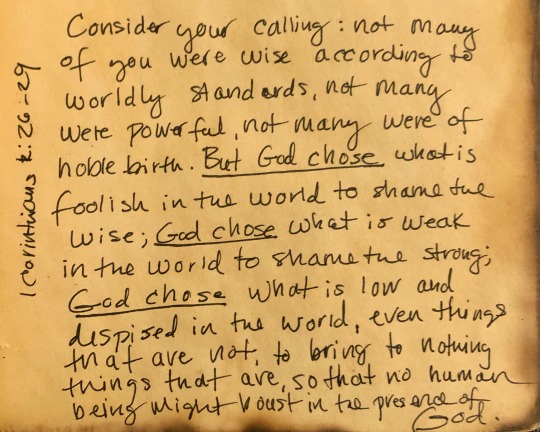 Consider your calling: not many
of you were wise according to
worldly standards, not many
were powerful, not many were of
noble birth. But God chose what is
foolish in the world to shame the
wise; God chose what is weak
in the world to shame the strong;
God chose what is low and
despised in the world, even things
that are not, to bring to nothing
things that are, so that no human
being might boast in the presence of
God.
1 Corinthians 1:26-29